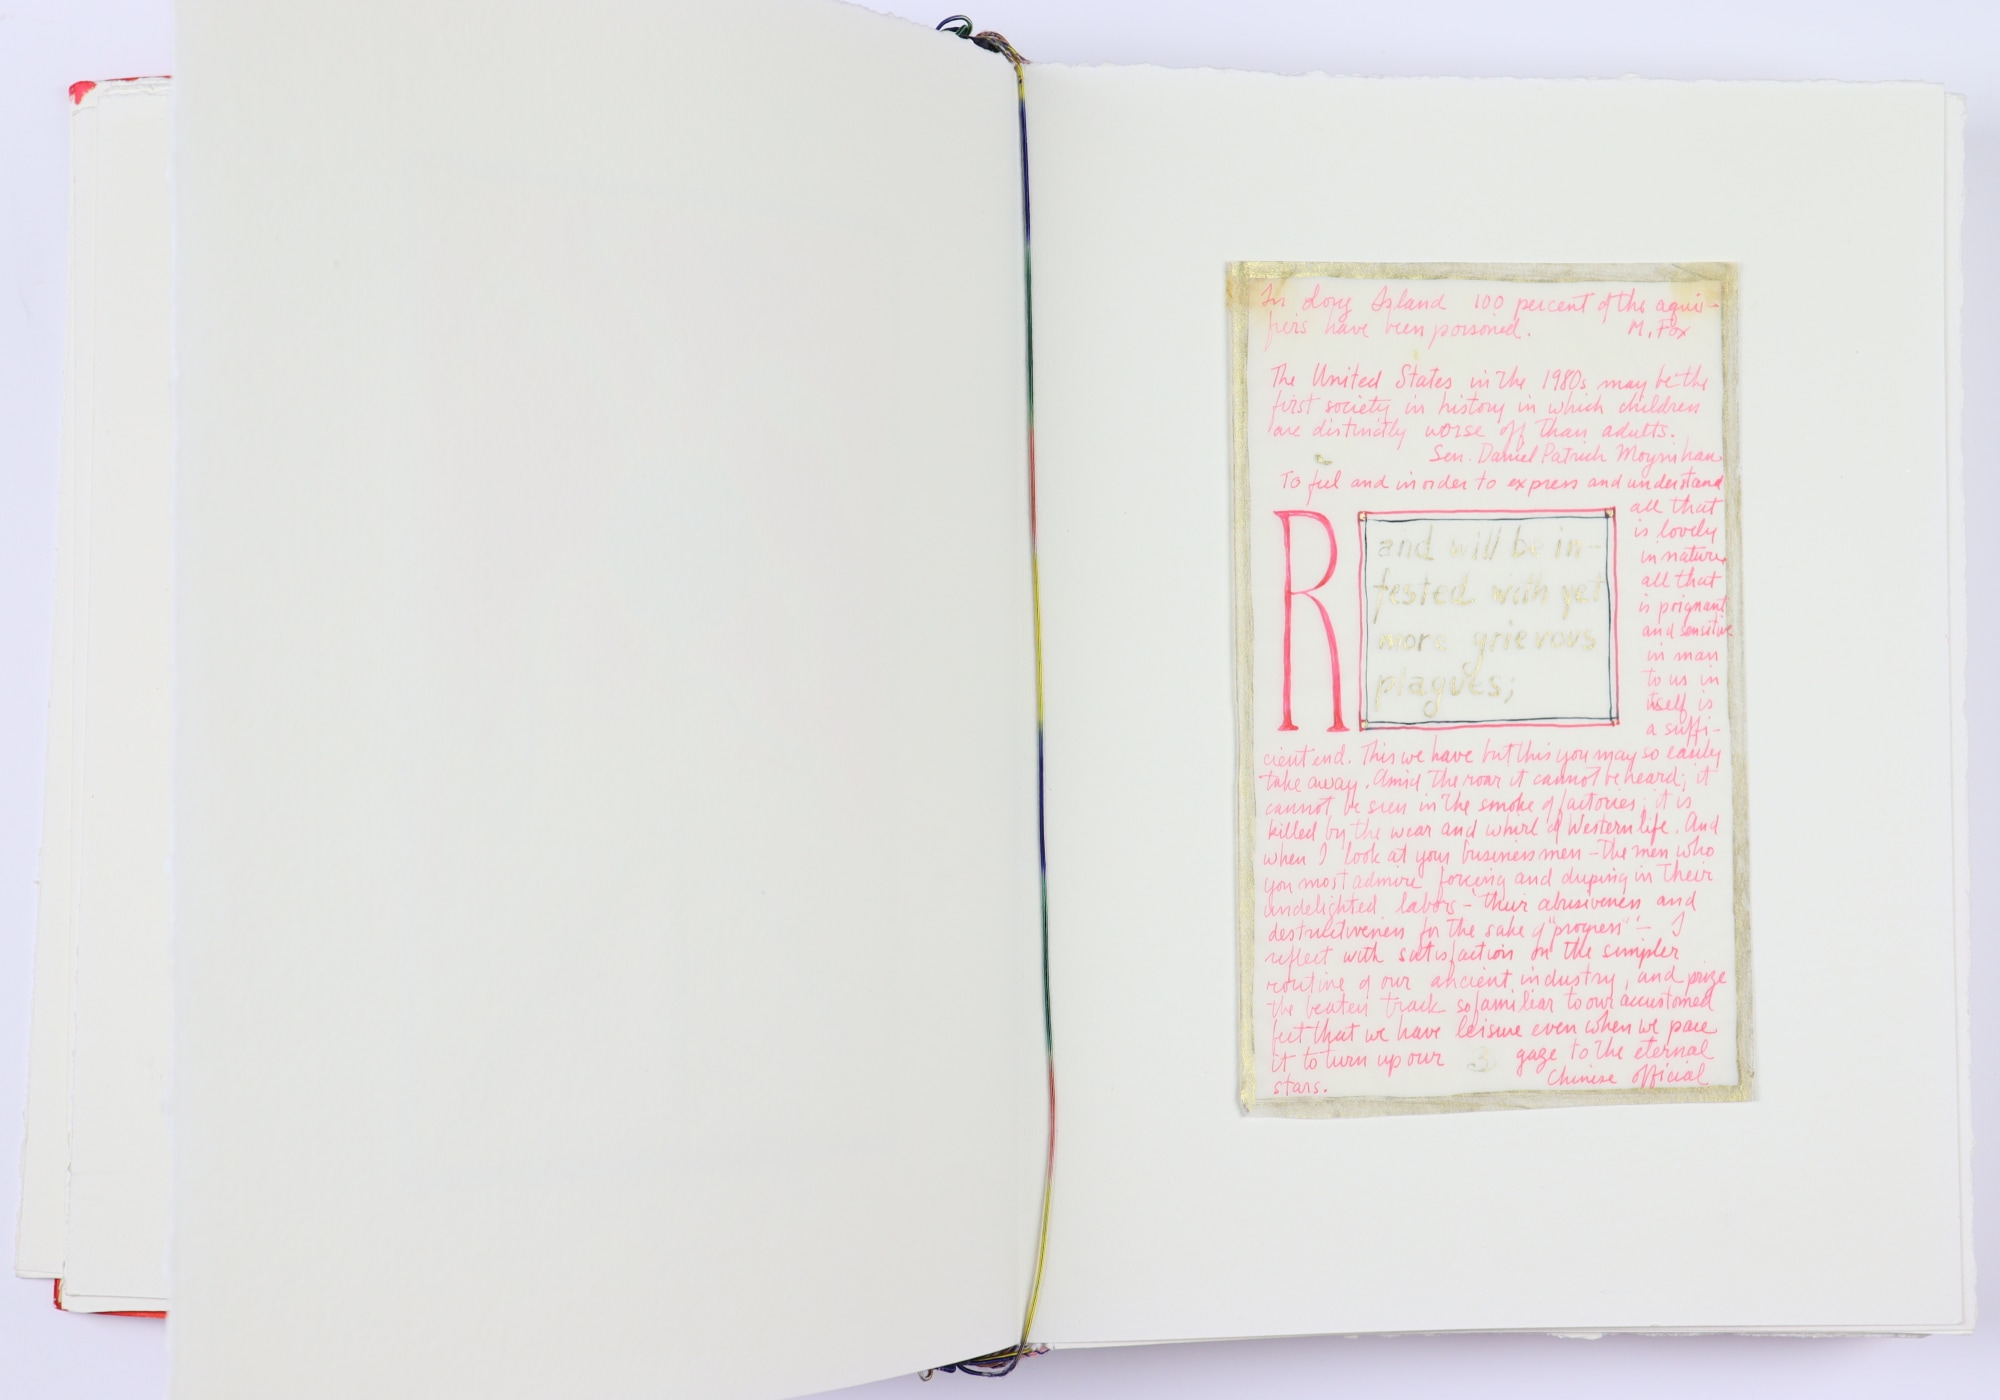 In Long Island 100 percent of the aqui-
fiers have been poisoned. M. Fox
The United States in the 1980s may be the
first society in history in which children
are distinctly worse off than adults.
Sen. Daniel Patrick Moynihan
To feel and in order to express and understand
all that
is lovely
in nature
all that
is poignant
and sensitive
in man
to us in
itself is
a suffi-
R
and will be in-
fested with yet
more grievous
plagues;
cient end. This we have but this you may so easily
take away. Amid the roar it cannot be heard; it
cannot be seen in the smoke of factories; it is
killed by the wear and whirl of Western life. And
when I look at your businessmen – the men who
you most admire forcing and duping in their
undelighted labors – their abusiveness and
destructiveness for the sake of "progress" – I
reflect with satisfaction on the simpler
routine of our ancient industry, and prize
the beaten track so familiar to our accustomed
feet that we have leisure even when we pace
it to turn up our 3 gaze to the eternal
stars. Chinese official